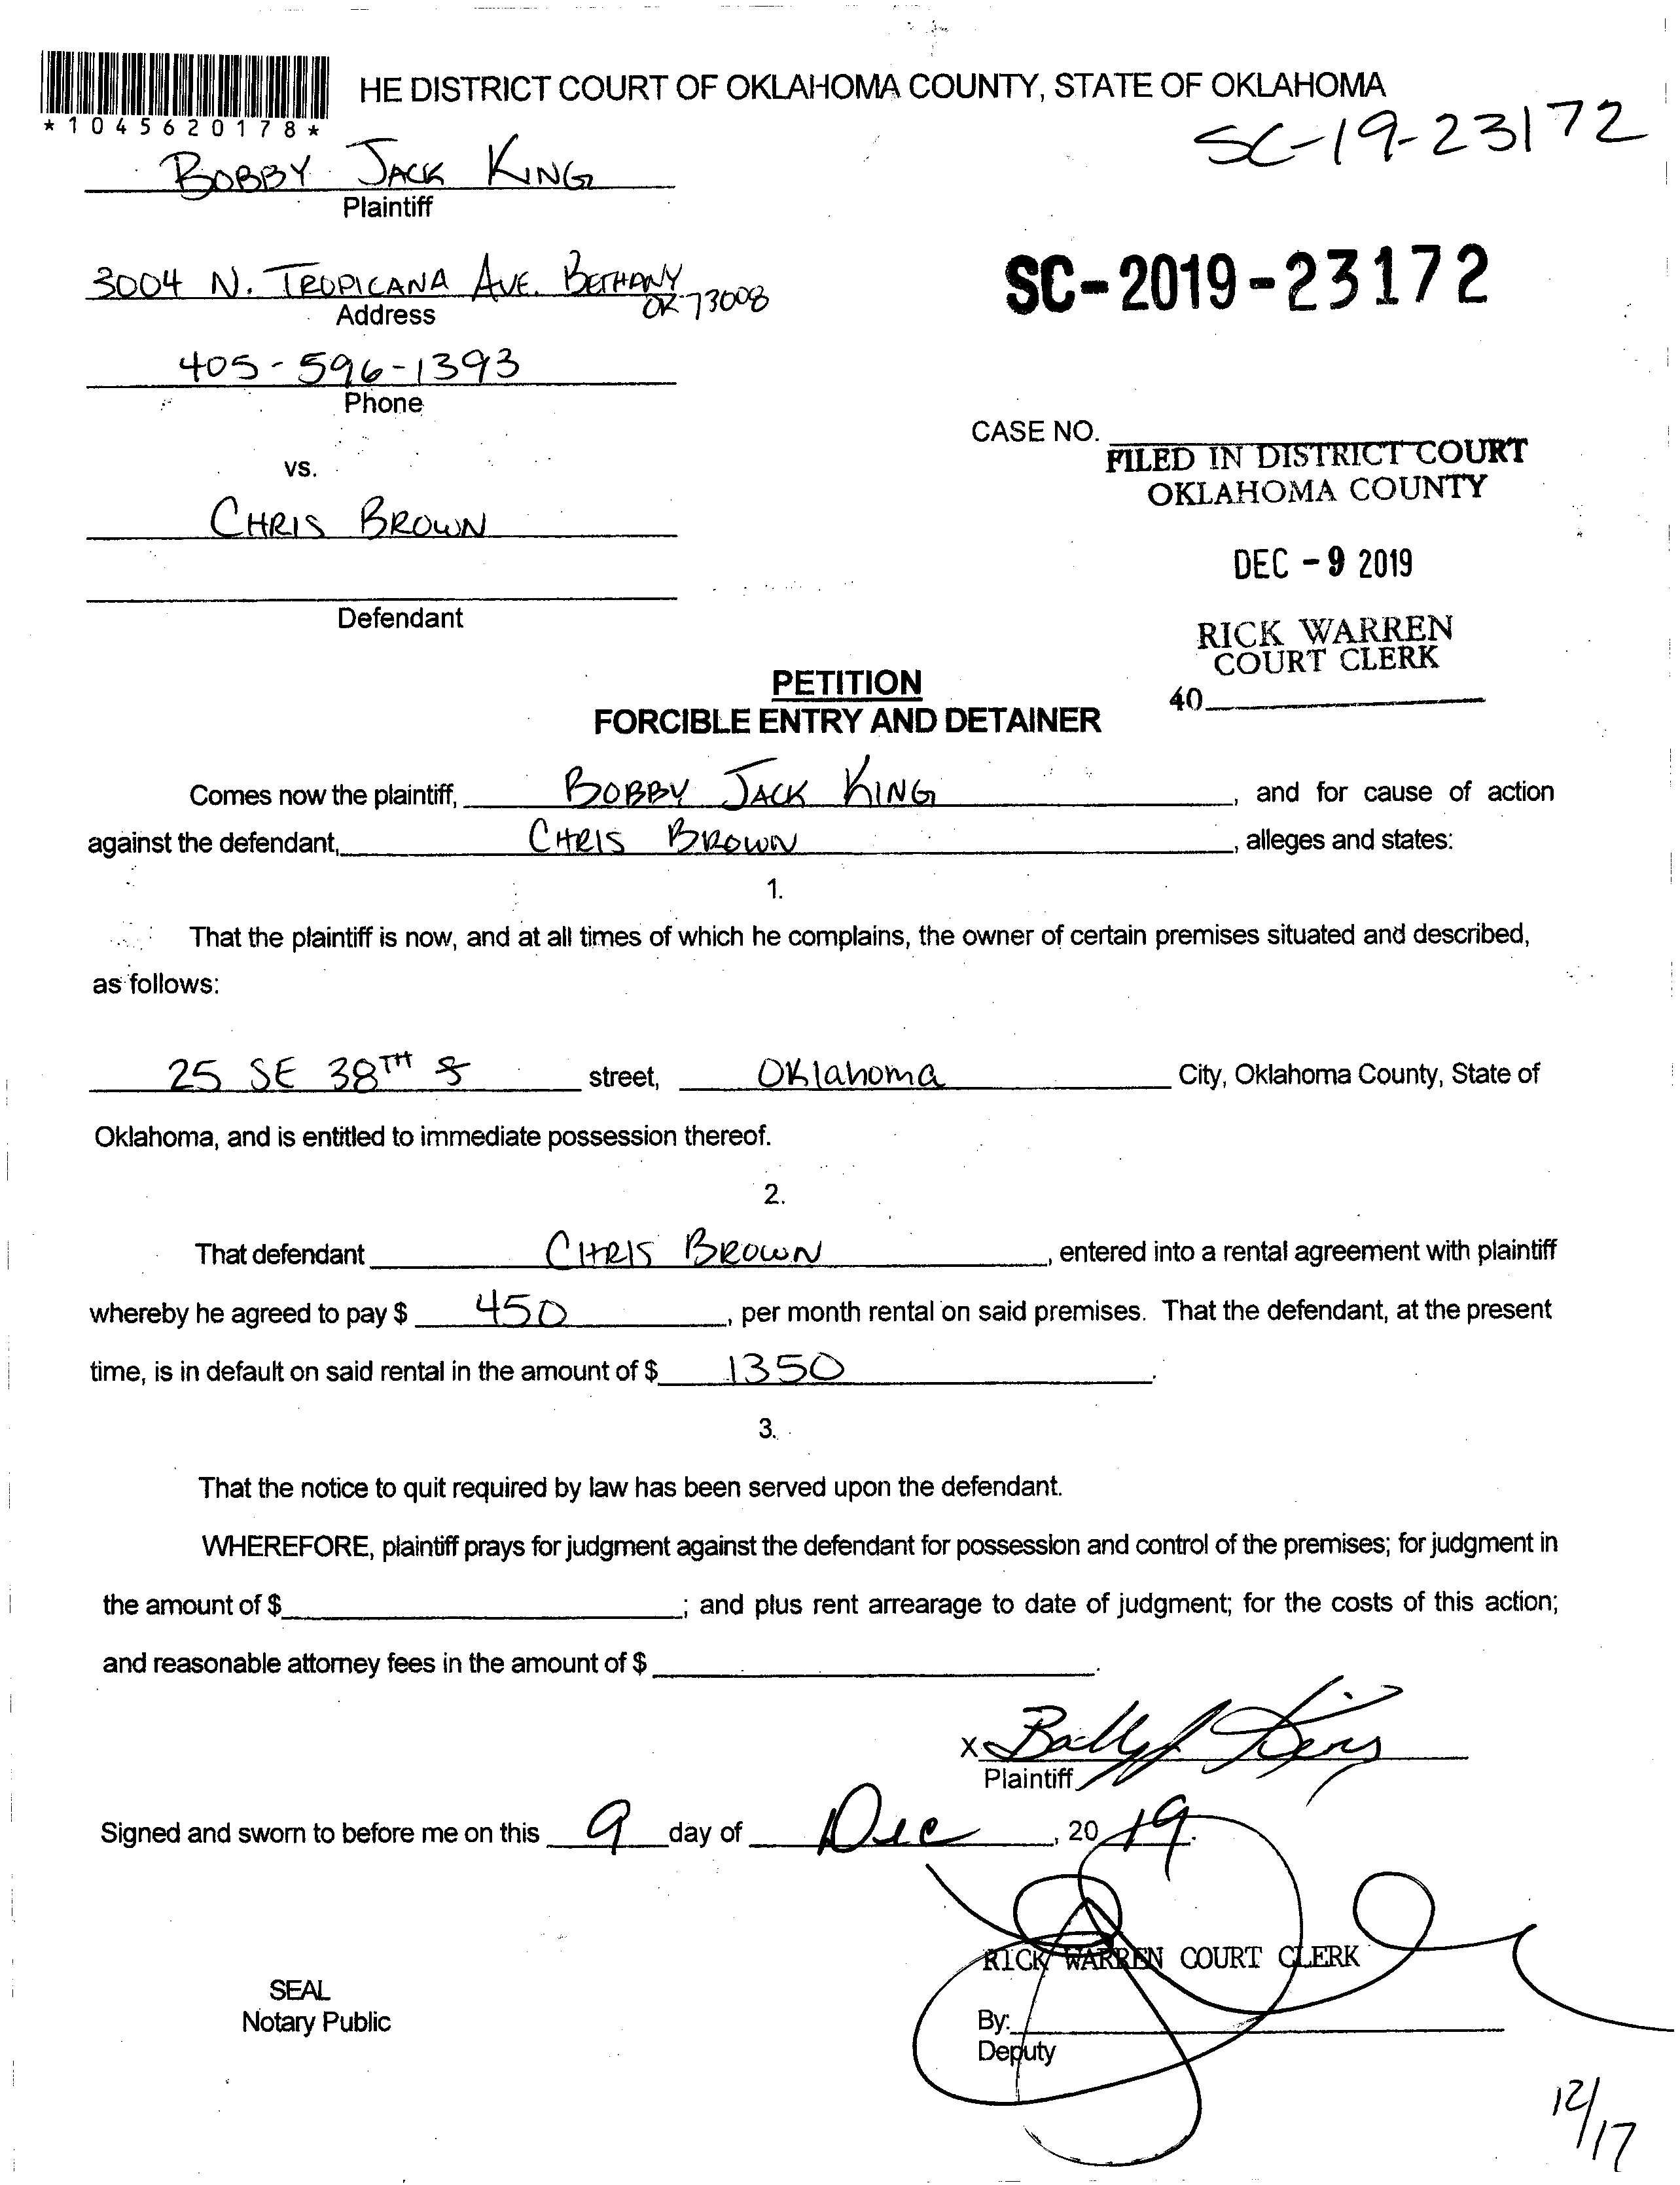 HE DISTRICT COURT OF OKLAHOMA COUNTY, STATE OF OKLAHOMA
*1045620178*
SC-19-23172
BOBBY JACK KING
Plaintiff
3004 N. TROPICANA AVE. BETHANY
OK 73008
Address
SC-2019-23172
405-596-1393
Phone
CASE NO.
FILED IN DISTRICT COURT
OKLAHOMA COUNTY
vs.
CHRIS BROWN
DEC -9 2019
Defendant
RICK WARREN
COURT CLERK
40
PETITION
FORCIBLE ENTRY AND DETAINER
Comes now the plaintiff, BOBBY JACK KING, and for cause of action
against the defendant, CHRIS BROWN, alleges and states:
1.
That the plaintiff is now, and at all times of which he complains, the owner of certain premises situated and described,
as follows:
25 SE 38TH street, Oklahoma City, Oklahoma County, State of
Oklahoma, and is entitled to immediate possession thereof.
2.
That defendant CHRIS BROWN, entered into a rental agreement with plaintiff
whereby he agreed to pay $ 450, per month rental on said premises. That the defendant, at the present
time, is in default on said rental in the amount of $ 1350.
3.
That the notice to quit required by law has been served upon the defendant.
WHEREFORE, plaintiff prays for judgment against the defendant for possession and control of the premises; for judgment in
the amount of $ ; and plus rent arrearage to date of judgment; for the costs of this action;
and reasonable attorney fees in the amount of $ .
X Bobby J King
Plaintiff
Signed and sworn to before me on this 9 day of Dec, 20 19.
RICK WARREN COURT CLERK
SEAL
Notary Public
By:
Deputy
12/17